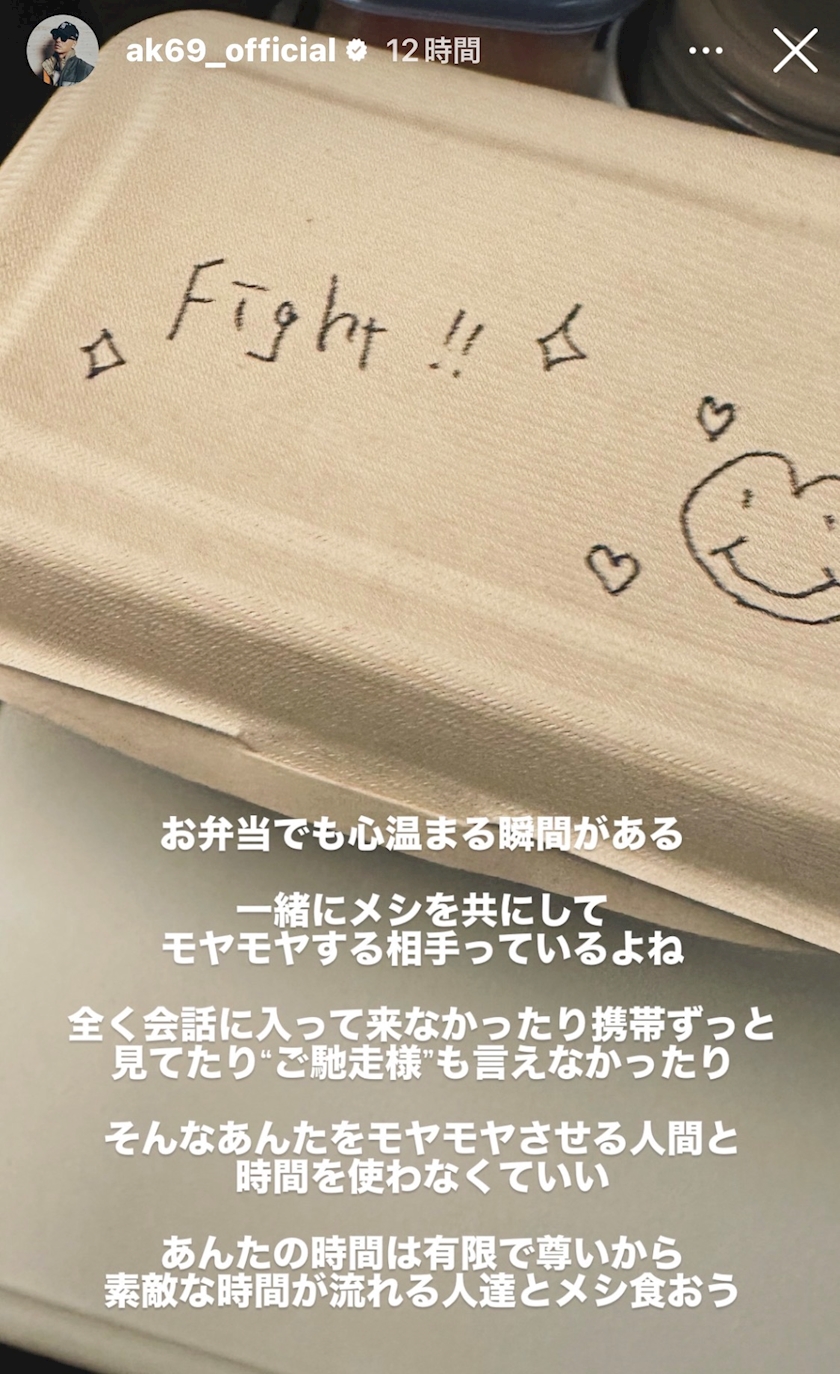 ak69_official 12時間
Fight !!
お弁当でも心温まる瞬間がある
一緒にメシを共にして
モヤモヤする相手っているよね
全く会話に入って来なかったり携帯ずっと
見てたり“ご馳走様”も言えなかったり
そんなあんたをモヤモヤさせる人間と
時間を使わなくていい
あんたの時間は有限で尊いから
素敵な時間が流れる人達とメシ食おう